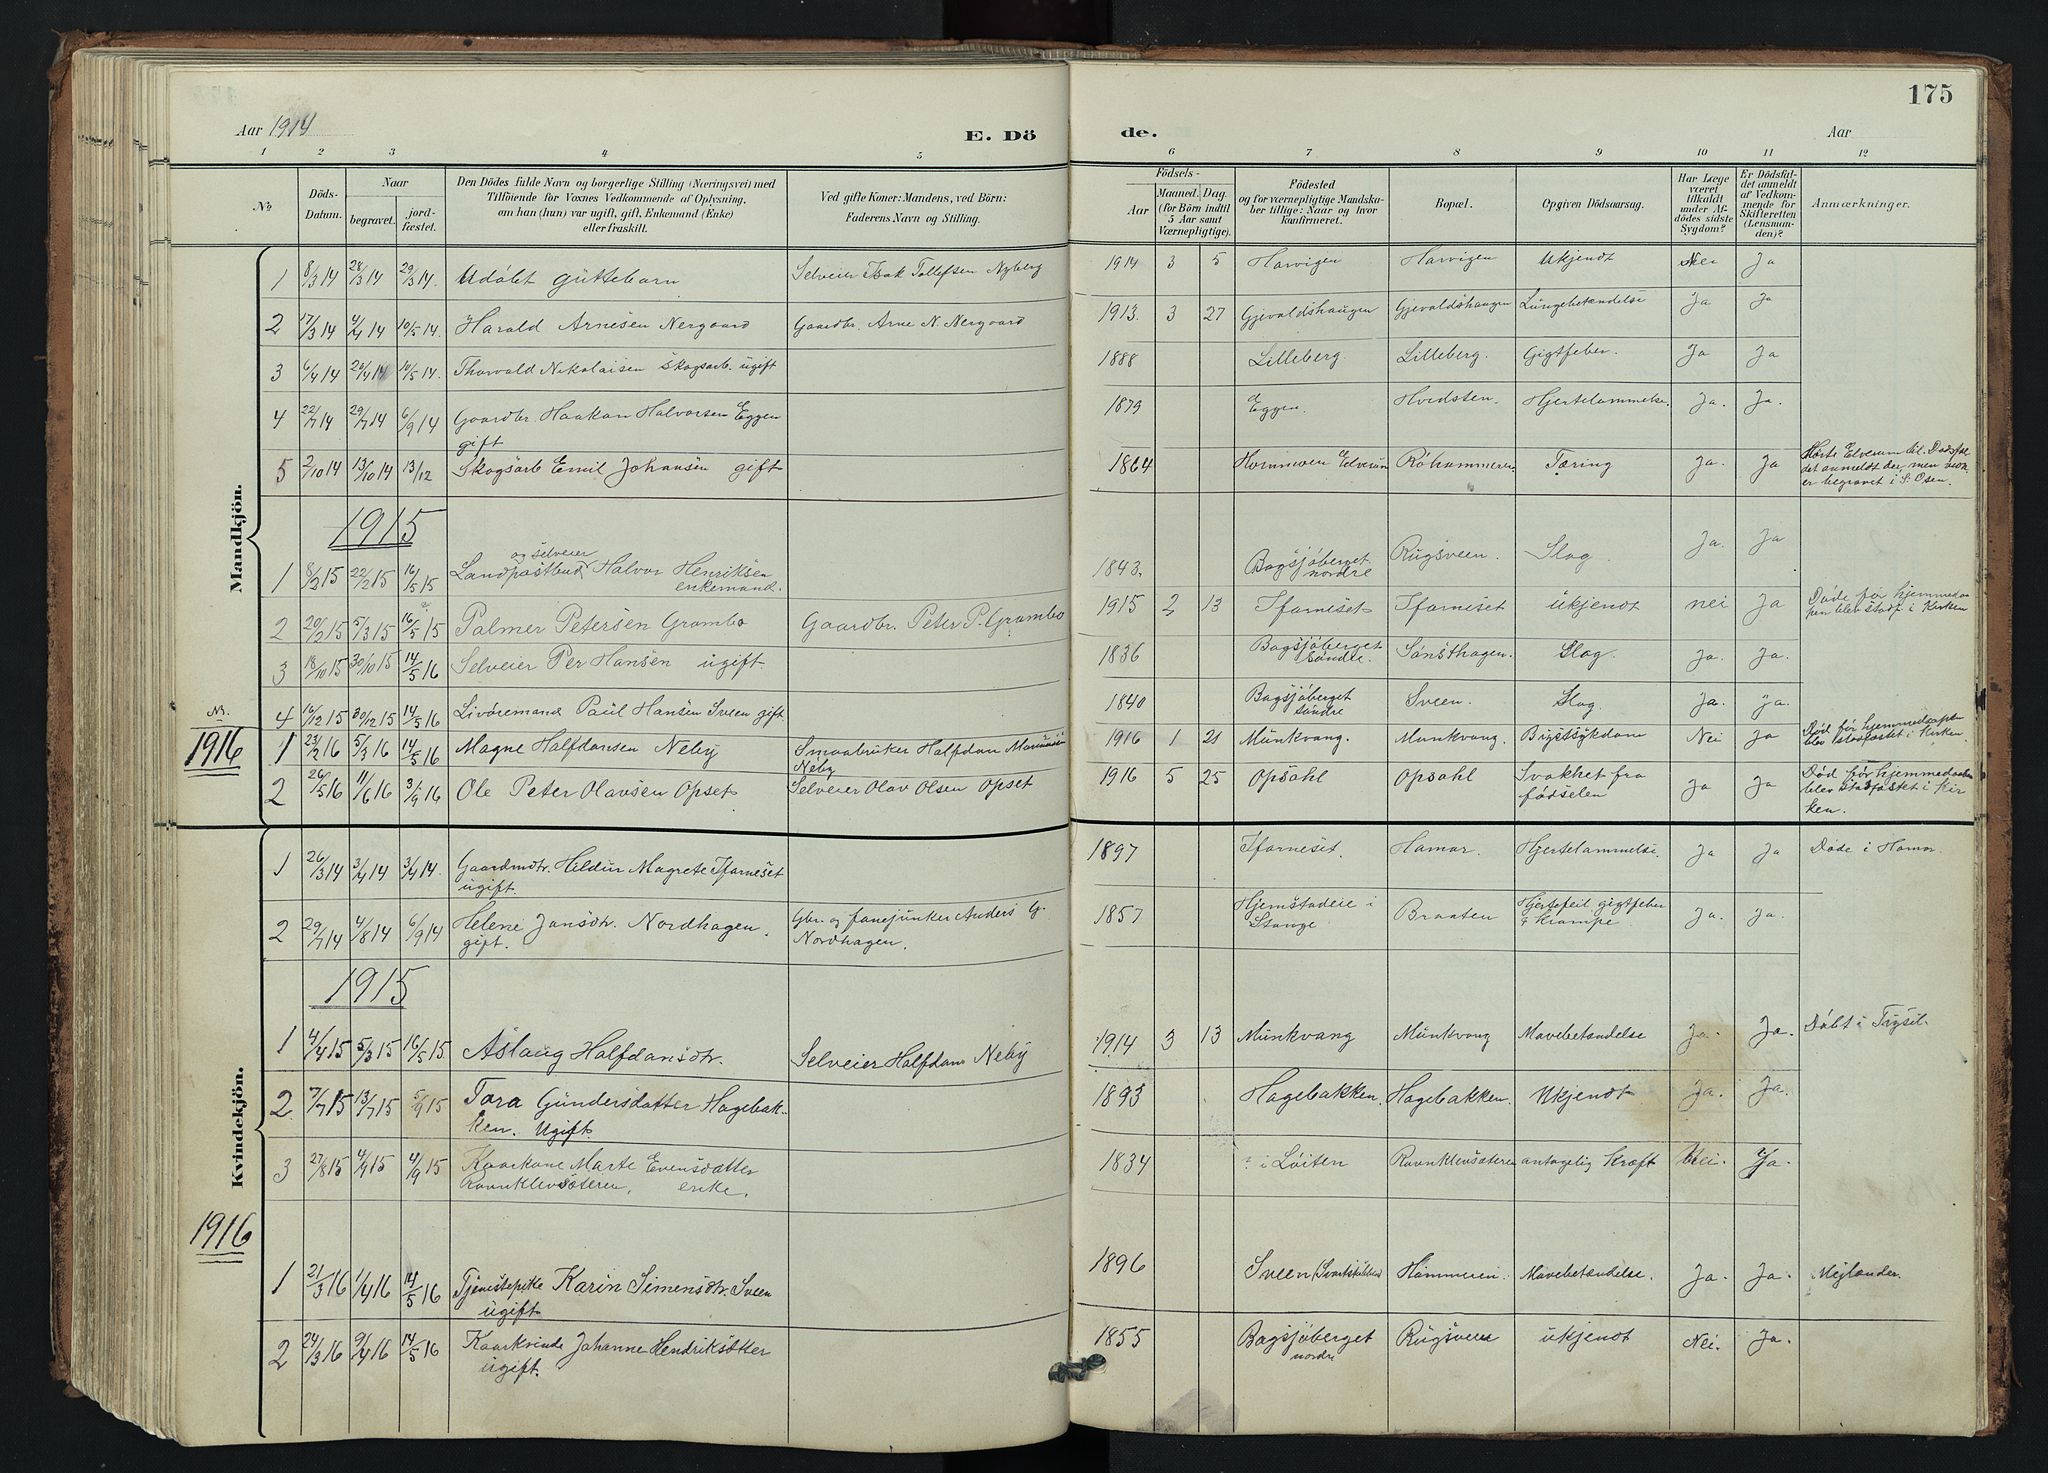 175
Aar 1914
E. Dö
de.
Aar
1 2 3 4 5 6 7 8 9 10 11 12
No
Döds-Datum.
Naar
begravet.
jord-fæstet.
Den Dödes fulde Navn og borgerlige Stilling (Næringsvei) med
Tilföiende for Voxnes Vedkommende af Oplysning,
om han (hun) var ugift, gift, Enkemand (Enke)
eller fraskilt.
Ved gifte Koner: Mandens, ved Börn:
Faderens Navn og Stilling.
Födsels-
Aar
Maaned. Dag.
(for Börn indtil
5 Aar samt
Værnepligtige).
Födested
og for værnepligtige Mandska-
ber tillige: Naar og hvor
konfirmeret.
Bopæl.
Opgiven Dödsaarsag.
Har Læge
været
tilkaldt
under Af-
dödes sidste
Sygdom?
Er Dödsfal-
det anmeldt
af Vedkom-
mende for
Skifteretten
(Lensman-
den)?
Anmærkninger.
Mandkjön.
1 8/3 14 28/3 14 29/3 14. Udöbt guttebarn Selveier Isak Tollefsen Nyberg 1914 3 5 Harvigen Harvigen Ukjendt Nei Ja
2 17/3 14 4/4 14 10/5 14. Harald Arnesen Nergaard Gaardbr. Arne N. Nergaard 1913. 3 27 Gjevaldshaugen Gjevaldshaugen Lungebetændelse Ja Ja
3 6/4 14 20/4 14 10/5 14. Thorvald Nikolaisen skogsarb. ugift 1888 Lilleberg. Lilleberg. Gigtfeber. Ja Ja
4 22/7 14 29/7 14 6/9 14 Gaardbr. Haakon Halvorsen Eggen 1879 Eggen. Hvedsten. Hjertelammelse. Ja. Ja.
gift
5 2/10 14 13/10 14 13/12 Skogsarb Emil Johansen gift 1864 Hornmoen Elverum Röhammeren Tæring Ja. Ja
Hørte Elverum til. Dødsfal
det anmeldt der, men
er begravet i S. Osen.
1915
1 8/2 15 22/2 15 16/5 15 Landpostbud og selveier Halvor Henriksen 1843. Bagsjøberget Rugsveen. Slag. Ja. Ja
enkemand. nordre
2 20/2 15 5/3 15 16/5 15 Palmer Petersen Grambo Gaardbr. Peter P. Grambo 1915 2 13 Ifarneset Ifarneset ukjendt nei Ja
Døde før hjemmedaa
pen blev stadf. i Kirken
3 18/10 15 30/10 15 14/5 16 Selveier Per Hansen ugift. 1836 Bagsjøberget Sønsthagen. Slag. Ja. Ja.
søndre.
4 16/12 15 30/12 15 14/5 16 Livøremand Paul Hansen Sveen gift. 1840 Bagsjøberget Sveen. Slag. Ja. Ja.
søndre
Nr.
1916
1 23/2 16 5/3 16 14/5 16 Magne Halfdansen Neby Smaabruker Halfdan 1916 1 21 Munkvang. Munkvang. Nei Ja
Neby
Død før hjemmedaapen
blev stadfæstet i Kirken.
2 26/5 16 11/6 16 3/9 16 Ole Peter Olavsen Opset Selveier Olav Olsen Opset 1916 5 25 Opsahl Opsahl Svakhet fra Ja Ja
fødselen
Død før hjemmedaaben
blev stadfæstet i Kir
ken.
Kvindekjön.
1 26/3 14 3/4 14 3/4 14. Gaardmdtr. Hildur Magrete Ifarneset 1897 Ifarneset. Hamar. Hjertelammelse. Ja Ja Døde i Hamar.
ugift.
2 29/7 14 4/8 14 6/9 14 Helene Jansdtr. Nordhagen. Gbr. og fanejunker Anders G. 1857 Hjemstadeie i Braaten Hjertefeil gigtfeber Ja. Ja.
gift. Nordhagen. Stange Krampe
1915
1 4/4 15 5/3 15 16/5 15 Aslaug Halfdansdtr. Selveier Halfdan Neby 1914 3 13 Munkvang Munkvang Mavebetændelse Ja. Ja. Døbt i Trysil.
2 7/7 15 13/7 15 5/9 15 Tora Gundersdatter Hagebak- 1893 Hagebakken. Hagebakken. Ukjendt. Ja. Ja.
ken. Ugift.
3 27/8 15 4/9 15 4/9 15 Kaarkone Marte Evensdatter 1834 ? i Löiten Ravnklevsæteren antagelig Kræft Nei. Ja.
Ravnklevsæteren, enke.
1916
1 21/3 16 1/4 16 14/5 16 Tjenestepike Karin Simensdtr. Sveen 1896 Sveen Hammeren. Mavebetændelse. Ja. Ja.
ugift.
2 24/3 16 9/4 16 14/5 16 Kaarkvinde Johanne Hendriksdtter 1855 Bagsjøberget Rugsveen ukjendt Nei. Ja.
ugift. nordre